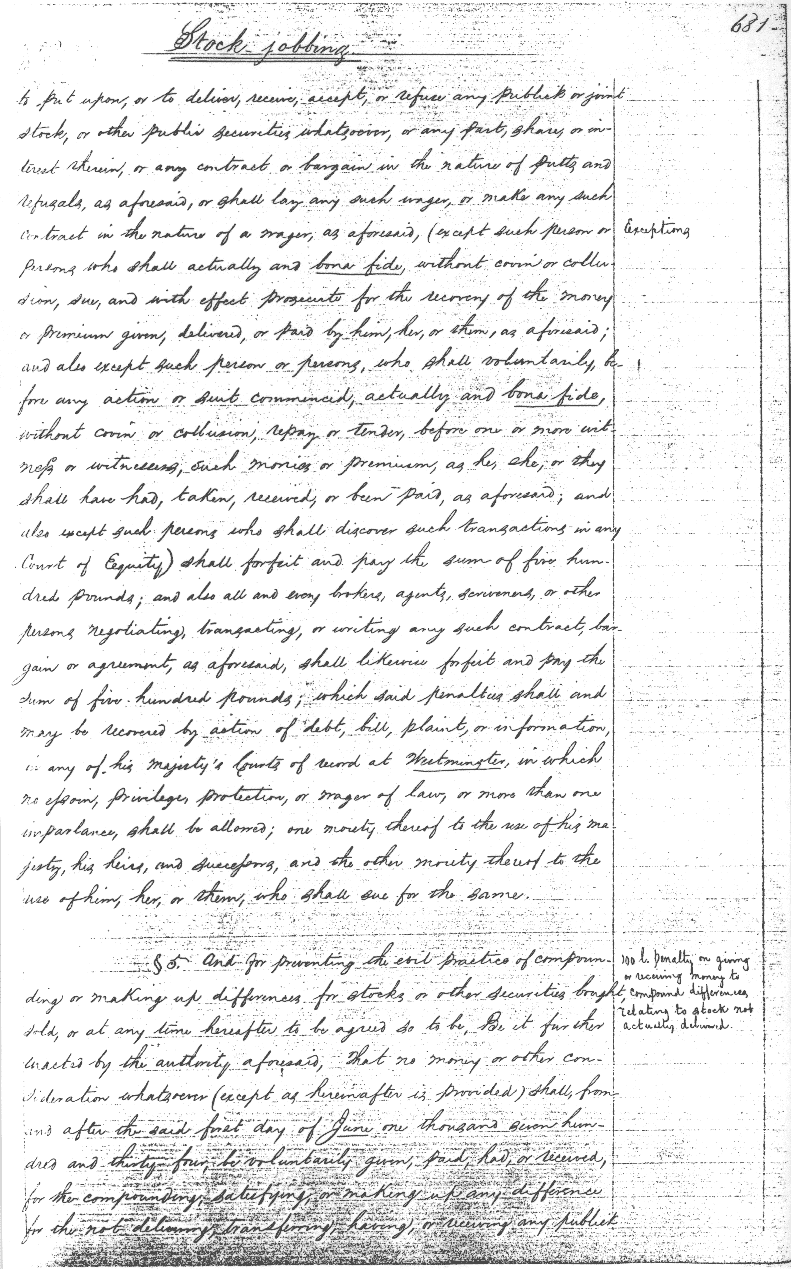 681-
Stock-jobbing.
to put upon, or to deliver, receive, accept, or refuse any publick or joint
stock, or other public securities whatsoever, or any part, share, or in-
terest therein, or any contract or bargain in the nature of putts and
refusals, as aforesaid, or shall lay any such wager, or make any such
contract in the nature of a wager, as aforesaid, (except such person or
Exceptions
persons who shall actually and bona fide, without covin or collu-
sion, sue, and with effect prosecute for the recovery of the money
or premium given, delivered, or paid by him, her, or them, as aforesaid;
and also except such person or persons, who shall voluntarily, be-
fore any action or suit commenced, actually and bona fide,
without covin or collusion, repay or tender, before one or more wit-
ness or witnesses, such monies or premium, as he, she, or they
shall have had, taken, received, or been paid, as aforesaid; and
also except such persons who shall discover such transactions in any
Court of Equity) shall forfeit and pay the sum of five hun-
dred pounds; and also all and every brokers, agents, scriveners, or other
persons negotiating, transacting, or writing any such contract, bar-
gain or agreement, as aforesaid, shall likewise forfeit and pay the
sum of five hundred pounds; which said penalties shall and
may be recovered by action of debt, bill, plaint, or information,
in any of his majesty's Courts of record at Westminster, in which
no essoin, privilege, protection, or wager of law, or more than one
imparlance, shall be allowed; one moiety thereof to the use of his ma-
jesty, his heirs, and successors, and the other moiety thereof to the
use of him, her, or them, who shall sue for the same.
§ 5. And for preventing the evil practice of compoun-
ding or making up differences for stocks or other securities bought,
sold, or at any time hereafter to be agreed so to be, Be it further
enacted by the authority aforesaid, That no money or other con-
sideration whatsoever (except as hereinafter is provided) shall, from
and after the said first day of June one thousand seven hun-
dred and thirty-four, be voluntarily given, paid, had, or received,
for the compounding, satisfying, or making up any difference
for the not delivering, transferring, having, or receiving any publick
100 l. penalty on giving
or receiving money to
compound differences
relating to stock not
actually delivered.